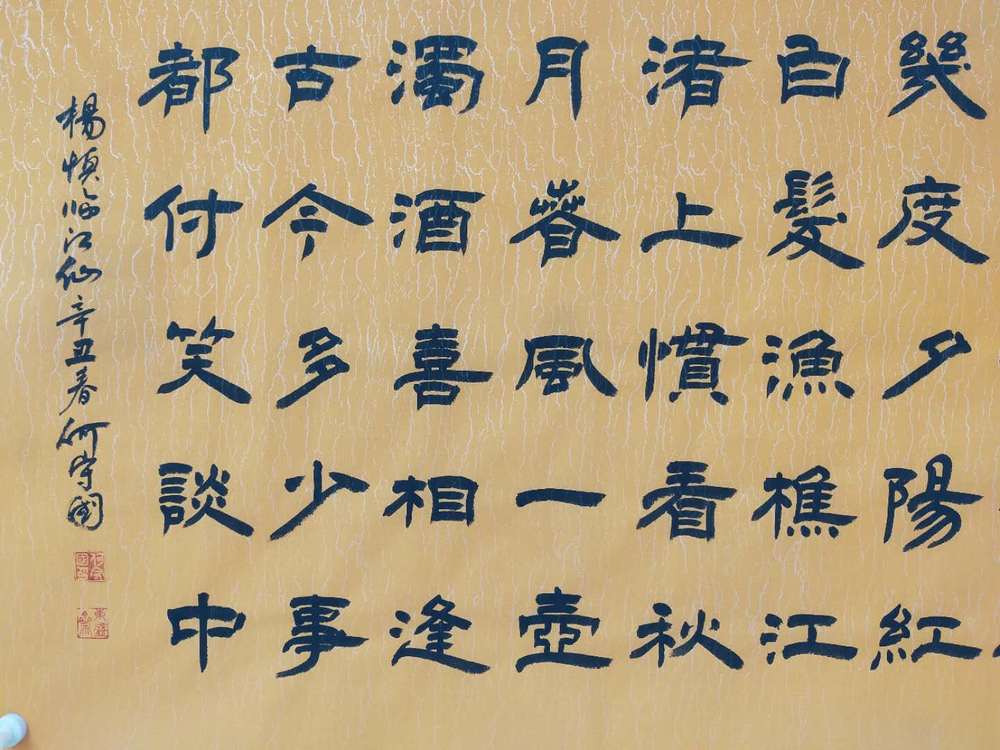 幾度夕陽紅
白髮漁樵江
渚上慣看秋
月春風一壺
濁酒喜相逢
古今多少事
都付笑談中
楊慎臨江仙辛丑春何守國